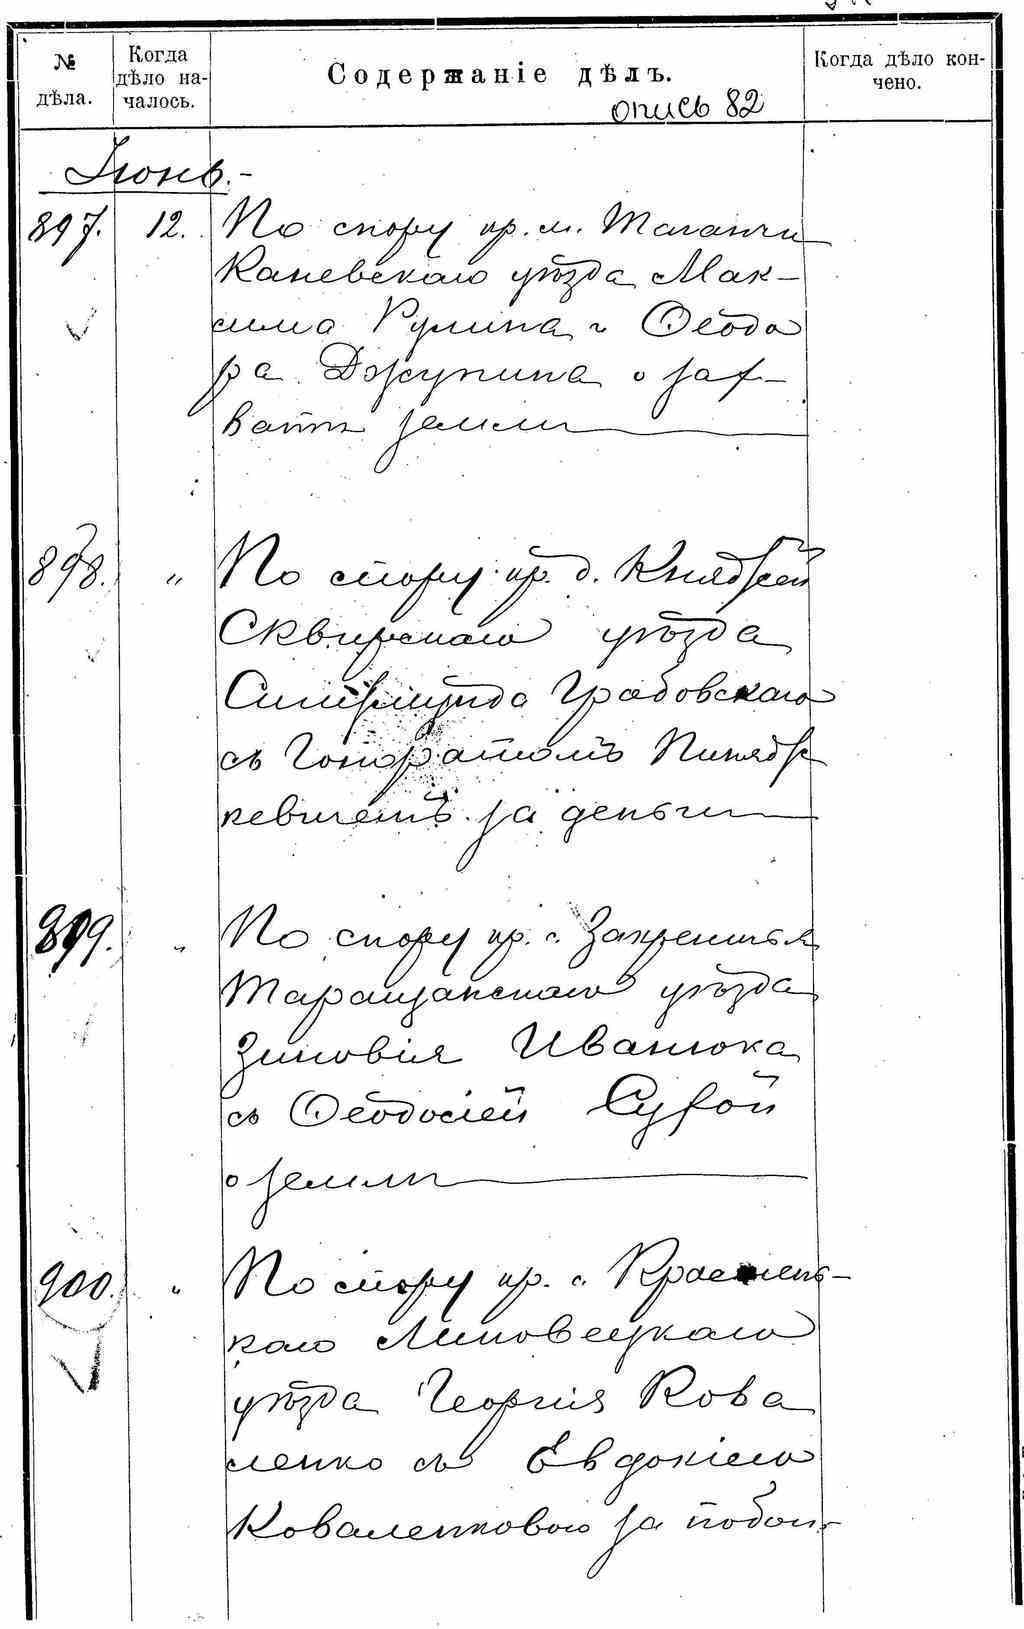 № дѣла.
Когда дѣло на-
чалось.
Содержаніе дѣлъ.
Когда дѣло кон-
чено.
опись 82
Іюнь.-
897. 12. По спору кр. м. Таганчи
Каневскаго уѣзда Мак-
сима Рулина и Ѳеодо
ра Джупина о зах-
ватѣ земли
898. " По спору кр. д.
Сквирскаго уѣзда
Сигизмунда Грабовскаго
съ Гоноратомъ
кевичемъ за деньги
899. " По спору кр. с. Закреничья
Таращанскаго уѣзда
Зиновія Иванюка
съ Ѳеодосіей Сухой
о земли
900. " По спору кр. с. Красиень-
каго Липовецкаго
уѣзда Георгія Кова
ленко съ Евдокіею
Коваленковою за побои